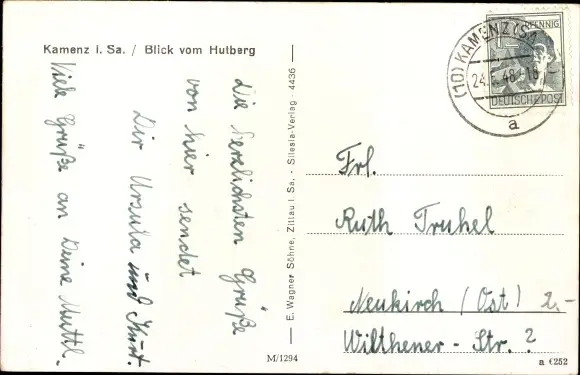 Kamenz i. Sa. / Blick vom Hutberg
Die herzlichsten Grüße
von hier sendet
Dir Ursula und Kurt.
Viele Grüße an Deine Muttl.
E. Wagner Söhne, Zittau i. Sa. · Silesia-Verlag · 4436
M/1294
PFENNIG
DEUTSCHE POST
(10) KAMENZ (SA)
48
a
Frl.
Ruth Truhel
Neukirch (Ost) 2,-
Wilthener - Str. ?
a €252